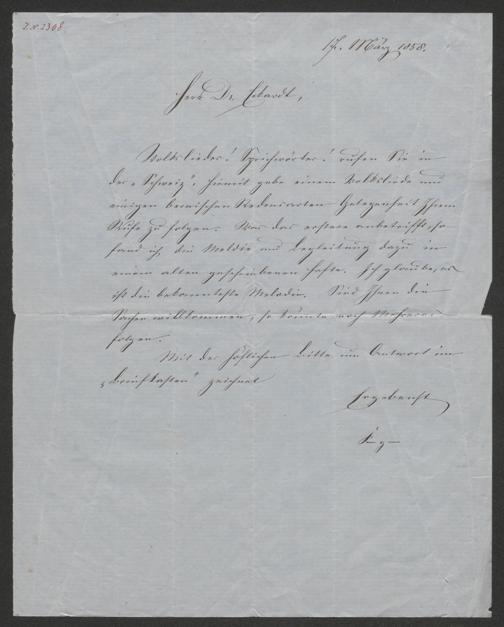 Z.N. 2308
17. März 1858.
Herr Dr. Eckardt,
Volkslieder! Sprichwörter! rufen Sie in
der „Schweiz“. Hiemit gebe einem Volksliede und
einigen bernischen Redensarten Gelegenheit Ihrem
Rufe zu folgen. Was das erstere anbetrifft, so
fand ich die Melodie und Begleitung dazu in
einem alten geschriebenen Hefte. Ich glaube, es
ist die bekannteste Melodie. Sind Ihnen die
Sachen willkommen, so könnte noch Mehreres
folgen.
Mit der höflichen Bitte um Antwort im
„Briefkasten“ zeichnet
Ergebenst